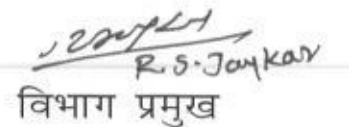 R.S. Jaykar
विभाग प्रमुख